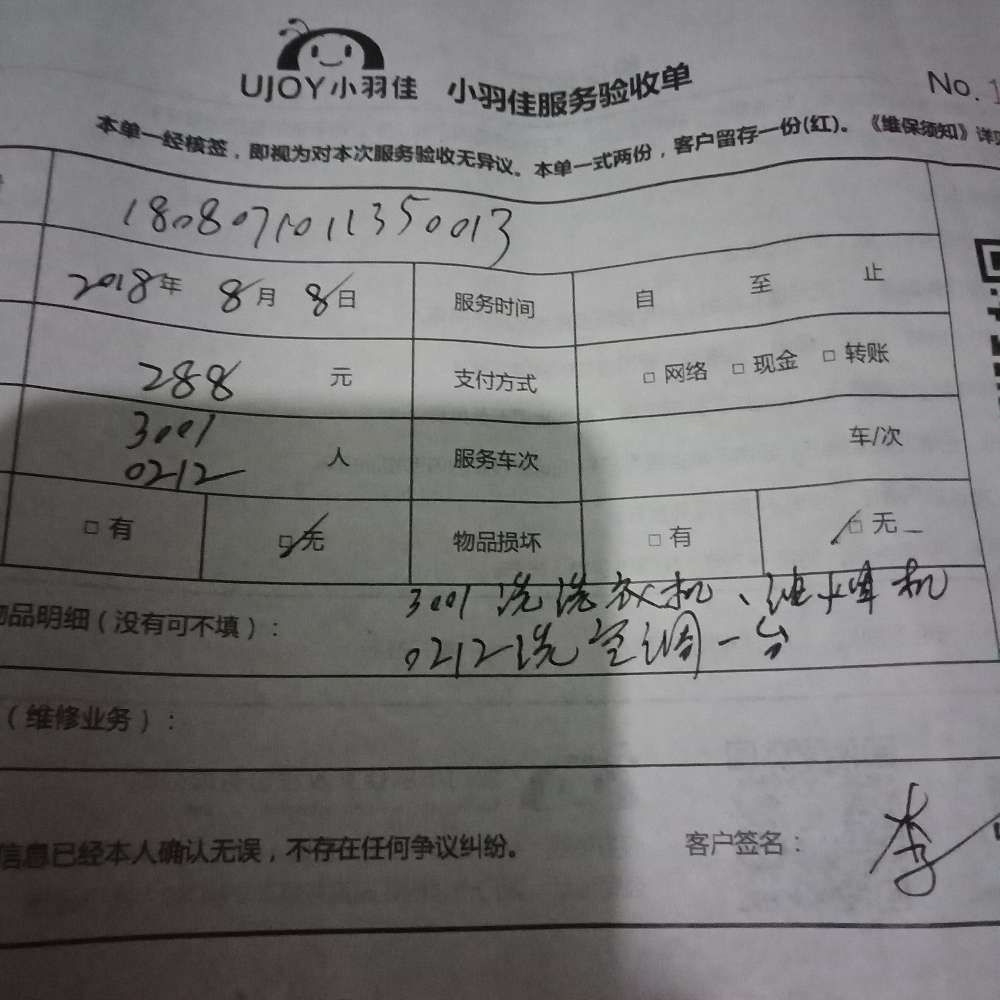 UJOY小羽佳 小羽佳服务验收单 No.
本单一经核签，即视为对本次服务验收无异议。本单一式两份，客户留存一份(红)。《维保须知》详
180807101135 0013
2018年 8月 8日 服务时间 自 至 止
288 元 支付方式 □ 网络 □ 现金 □ 转账
3001
0212 人 服务车次 车/次
□ 有 □ 无 物品损坏 □ 有 □ 无
品明细（没有可不填）： 3001洗洗衣机、油烟机
0212洗空调一台
（维修业务）：
信息已经本人确认无误，不存在任何争议纠纷。 客户签名： 李